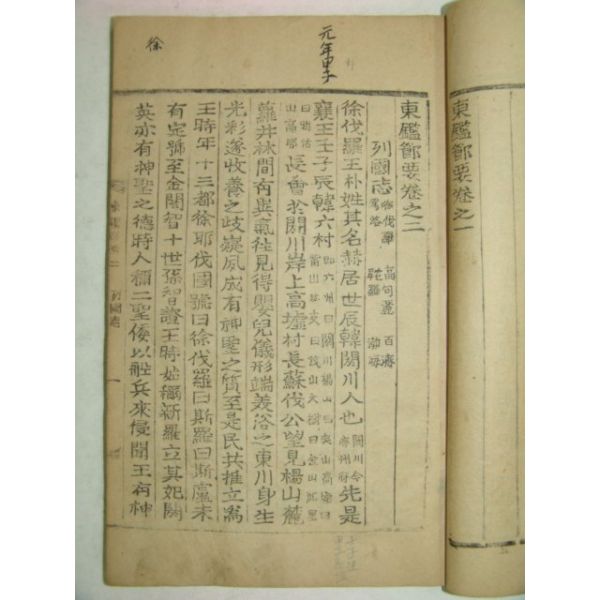 東鑑節要卷之一
元年甲子
徐
東鑑節要卷之二
列國志 徐伐羅 高句麗 百濟 駕洛 耽羅 渤海
徐伐羅王朴姓其名赫居世辰韓閼川人也 閼川今慶州府 先是
襄王壬子辰韓六村
長會於閼川岸上高墟村長蘇伐公望見楊山麓
蘿井林間有異氣往見得嬰兒儀形端美浴之東川身生
光彩遂收養之歧嶷夙成有神聖之質至是民共推立爲
王時年十三都徐耶伐國號曰徐伐羅曰斯羅曰斯盧未
有定號至金閼智十世孫智證王時始稱新羅立其妃閼
英亦有神聖之德時人稱二聖倭以舡兵來侵聞王有神
列國志 一